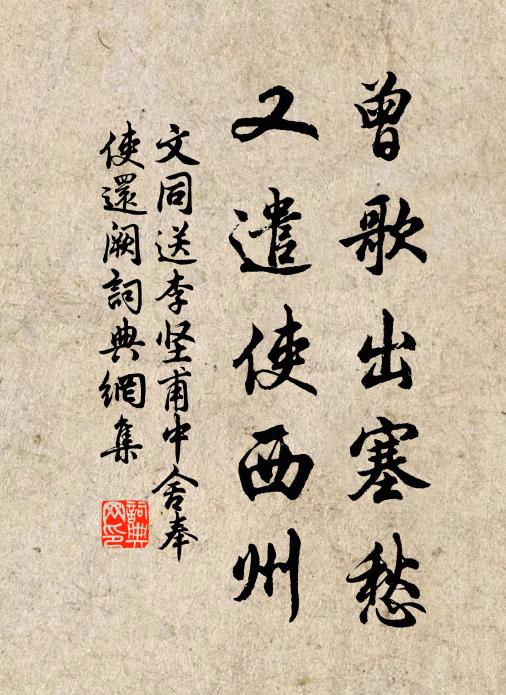 曾歌出塞愁
又遣使西州
文同送李坚甫中舍奉
使還阙詞典網集
詞典
网印